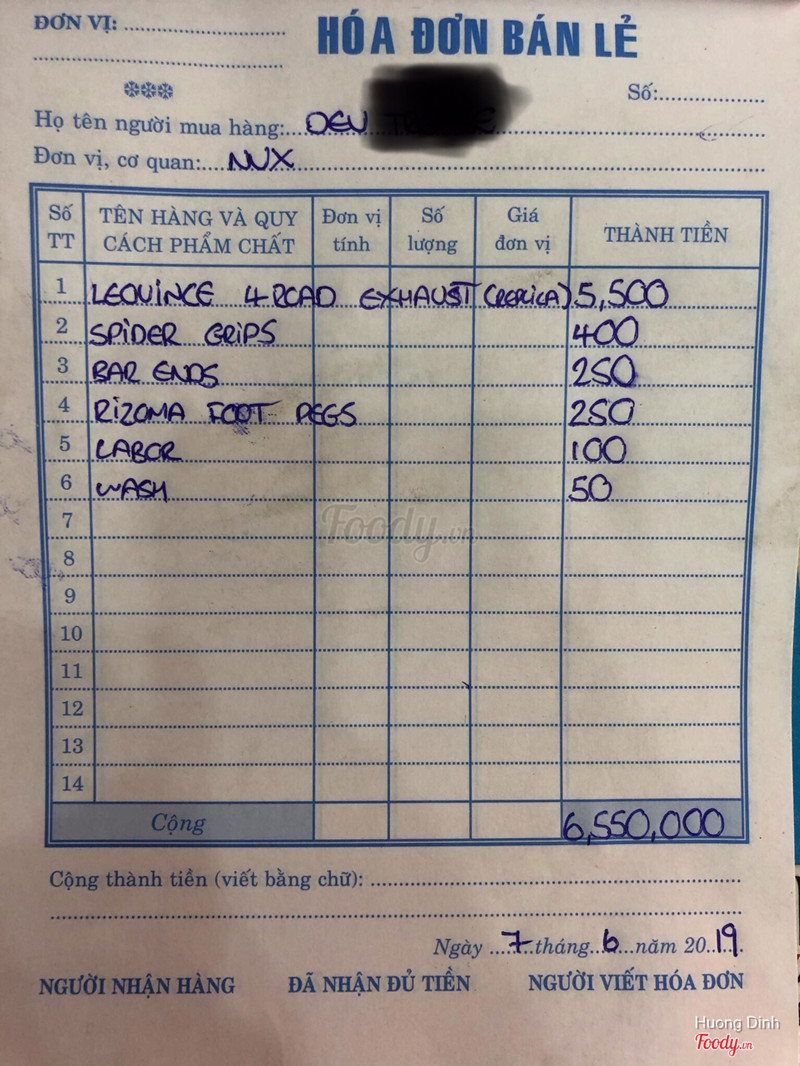 ĐƠN VỊ: ........................
HÓA ĐƠN BÁN LẺ
Số:................
Họ tên người mua hàng:...DEV
Đơn vị, cơ quan:....NVX
Số TT TÊN HÀNG VÀ QUY CÁCH PHẨM CHẤT Đơn vị tính Số lượng Giá đơn vị THÀNH TIỀN
1 LEOVINCE 4 ROAD EXHAUST (REPLICA) 5,500
2 SPIDER GRIPS 400
3 BAR ENDS 250
4 RIZOMA FOOT PEGS 250
5 LABOR 100
6 WASH 50
7
Foody.vn
8
9
10
11
12
13
14
Cộng 6,550,000
Cộng thành tiền (viết bằng chữ): ........................
Ngày ...7...tháng...6...năm 20..19.
NGƯỜI NHẬN HÀNG ĐÃ NHẬN ĐỦ TIỀN NGƯỜI VIẾT HÓA ĐƠN
Huong Dinh
Foody.vn